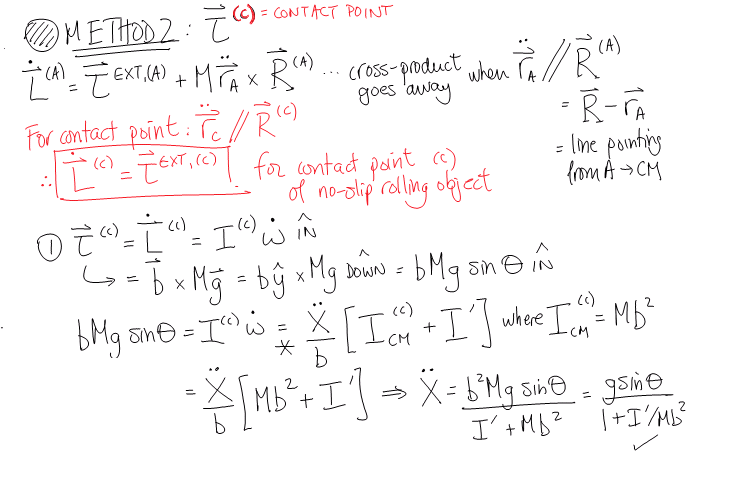 METHOD 2 : τ⃗ (c) = CONTACT POINT
L⃗̇ (A) = τ⃗ EXT,(A) + M r⃗̈_A × R⃗ (A) ... cross-product goes away when r⃗̈_A // R⃗ (A)
= R⃗ - r⃗_A
= line pointing from A → CM
For contact point : r⃗̈_c // R⃗ (c)
∴ L⃗̇ (c) = τ⃗ EXT,(c) for contact point (c) of no-slip rolling object
① τ⃗ (c) = L⃗̇ (c) = I (c) ω̇ IN̂
↳ = b⃗ × M g⃗ = b ŷ × Mg DOWN̂ = b Mg sin θ IN̂
b Mg sin θ = I (c) ω̇ =* Ẍ/b [ I_CM (c) + I' ] where I_CM (c) = Mb²
= Ẍ/b [ Mb² + I' ] ⇒ Ẍ = b² Mg sin θ / (I' + Mb²) = g sin θ / (1 + I'/Mb²) ✓